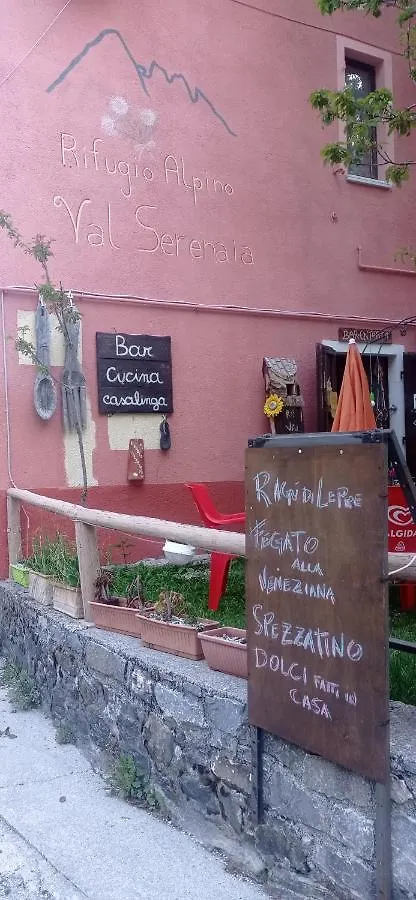 Rifugio Alpino
Val Serenaia
Bar
Cucina
casalinga
BENVENUTI
RAGÙ DI LEPRE
FEGATO
ALLA
VENEZIANA
SPEZZATINO
DOLCI FATTI IN
CASA
ALGIDA